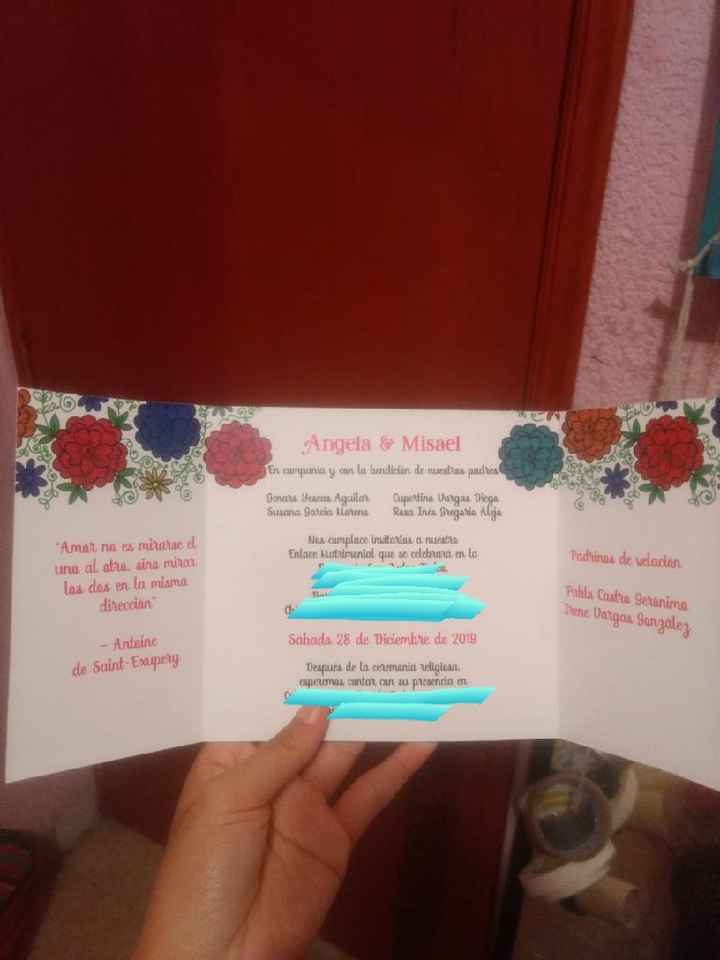 "Amar no es mirarse el
uno al otro, sino mirar
los dos en la misma
dirección"
- Antoine
de Saint-Exupery
Angela & Misael
En compania y con la bendición de nuestros padres
Genaro Yescas Aguilar
Susana García Moreno
Cupertino Vargas Diego
Rosa Inés Gregorio Alejo
Nos complace invitarlos a nuestro
Enlace Matrimonial que se celebrará en la
Sábado 28 de Diciembre de 2019
Después de la ceremonia religiosa,
esperamos contar con su presencia en
Padrinos de velación
Pablo Castro Gerónimo
Irene Vargas González